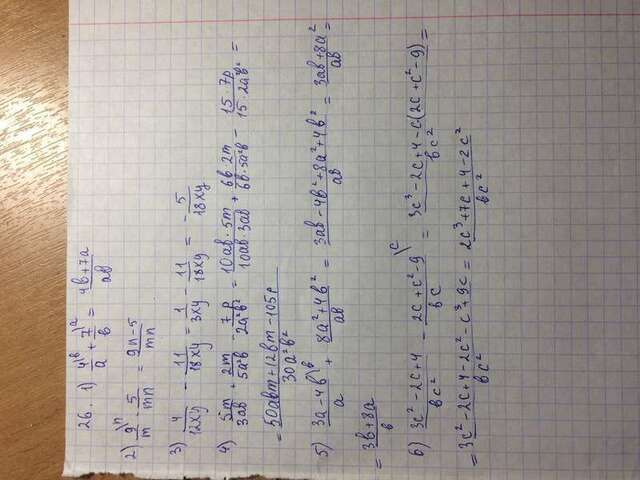 26. 1) 4\b/a + 7\a/b = (4b+7a)/ab
2) 9\n/m - 5/mn = (9n-5)/mn
3) 4/12xy - 11/18xy = 1/3xy - 11/18xy = -5/18xy
4) 5m/3ab + 2m/5a²b - 7p/2a²b² = (10ab·5m)/(10ab 3ab) + (6b 2m)/(6b·5a²b) - (15·7p)/(15·2a²b²) =
= (50abm+12bm-105p)/30a²b²
5) (3a-4b)\b/a + (8a²+4b²)/ab = (3ab-4b²+8a²+4b²)/ab = (3ab+8a²)/ab =
= (3b+8a)/b
6) (3c²-2c+4)/bc² - (2c+c²-9)\c/bc = (3c³-2c+4-c(2c+c²-9))/bc² =
= (3c²-2c+4-2c²-c³+9c)/bc² = (2c³+7c+4-2c²)/bc²